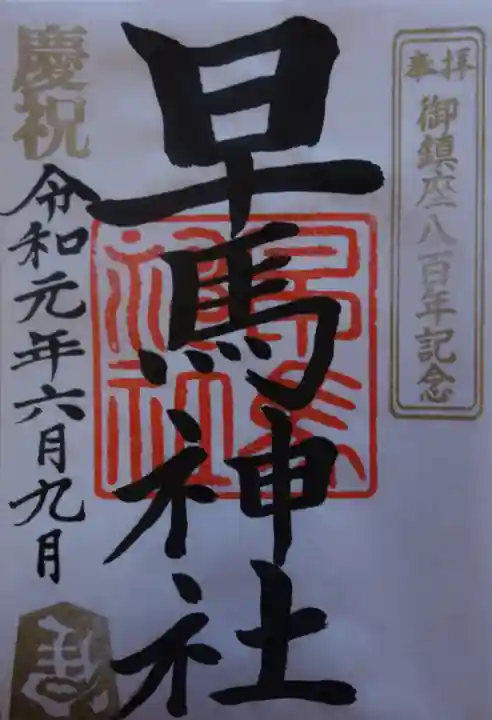 奉拝
御鎮座八百年記念
早馬神社
早馬
神社
慶祝
令和元年六月九月